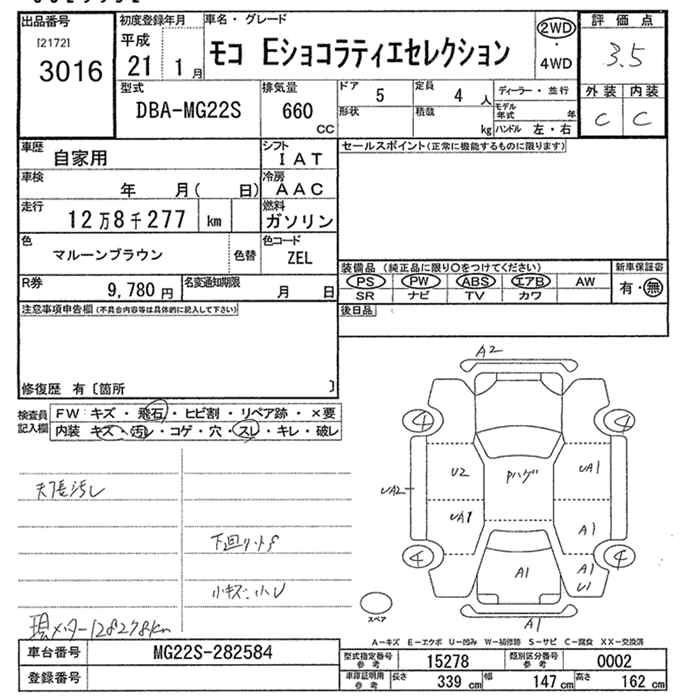 出品番号 初度登録年月 車名・グレード 評価点
[2172] 平成 モコ Eショコラティエセレクション 2WD 3.5
3016 21 1 月 ・ 4WD
外装 内装
C C
型式 排気量 ドア 5 定員 4 人 ディーラー・並行
DBA-MG22S 660 cc 形状 積載 kg モデル年式 年
ハンドル 左・右
車歴 自家用 シフト IAT セールスポイント(正常に機能するものに限ります)
車検 年 月( 日) 冷房 AAC
走行 12万8千277 km 燃料 ガソリン
色 マルーンブラウン 色替 色コード ZEL
装備品 (純正品に限り〇をつけてください) 新車保証書
PS PW ABS エアB AW 有・無
SR ナビ TV カワ
R券 9,780 円 名変通知期限 月 日
後日品
注意事項申告欄(不具合内容等は具体的に記入して下さい)
修復歴 有〔箇所 〕
検査員記入欄 FW:キズ・飛石・ヒビ割・リペア跡・×要
内装 キズ・汚レ・コゲ・穴・スレ・キレ・破レ
A2
4 4
U2 Pハゲ UA1
UA2
UA1 A1
4 4
A1 A1
U1
A1
スペア
天張汚レ
小キズ・小U
現メーター128278km
A-キズ E-エクボ U-凹み W-補修跡 S-サビ C-腐食 XX-交換済
車台番号 MG22S-282584 型式指定番号 参考 15278 類別区分番号 参考 0002
登録番号 車庫証明用 参考 長さ 339 cm 幅 147 cm 高さ 162 cm